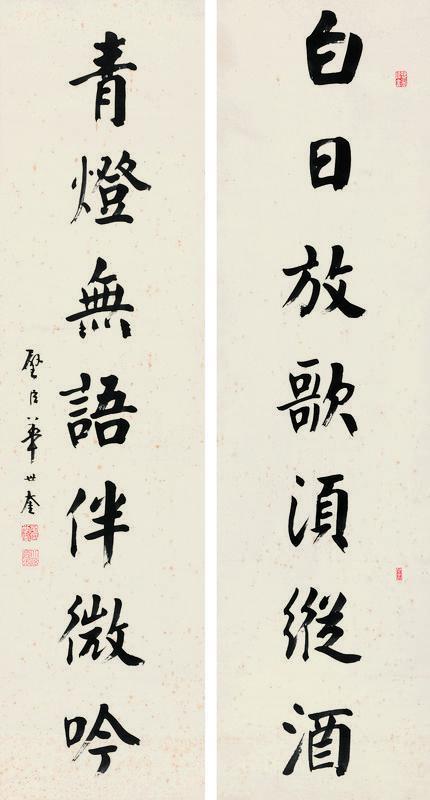 白日放歌須縱酒
青燈無語伴微吟
璧臣華世奎